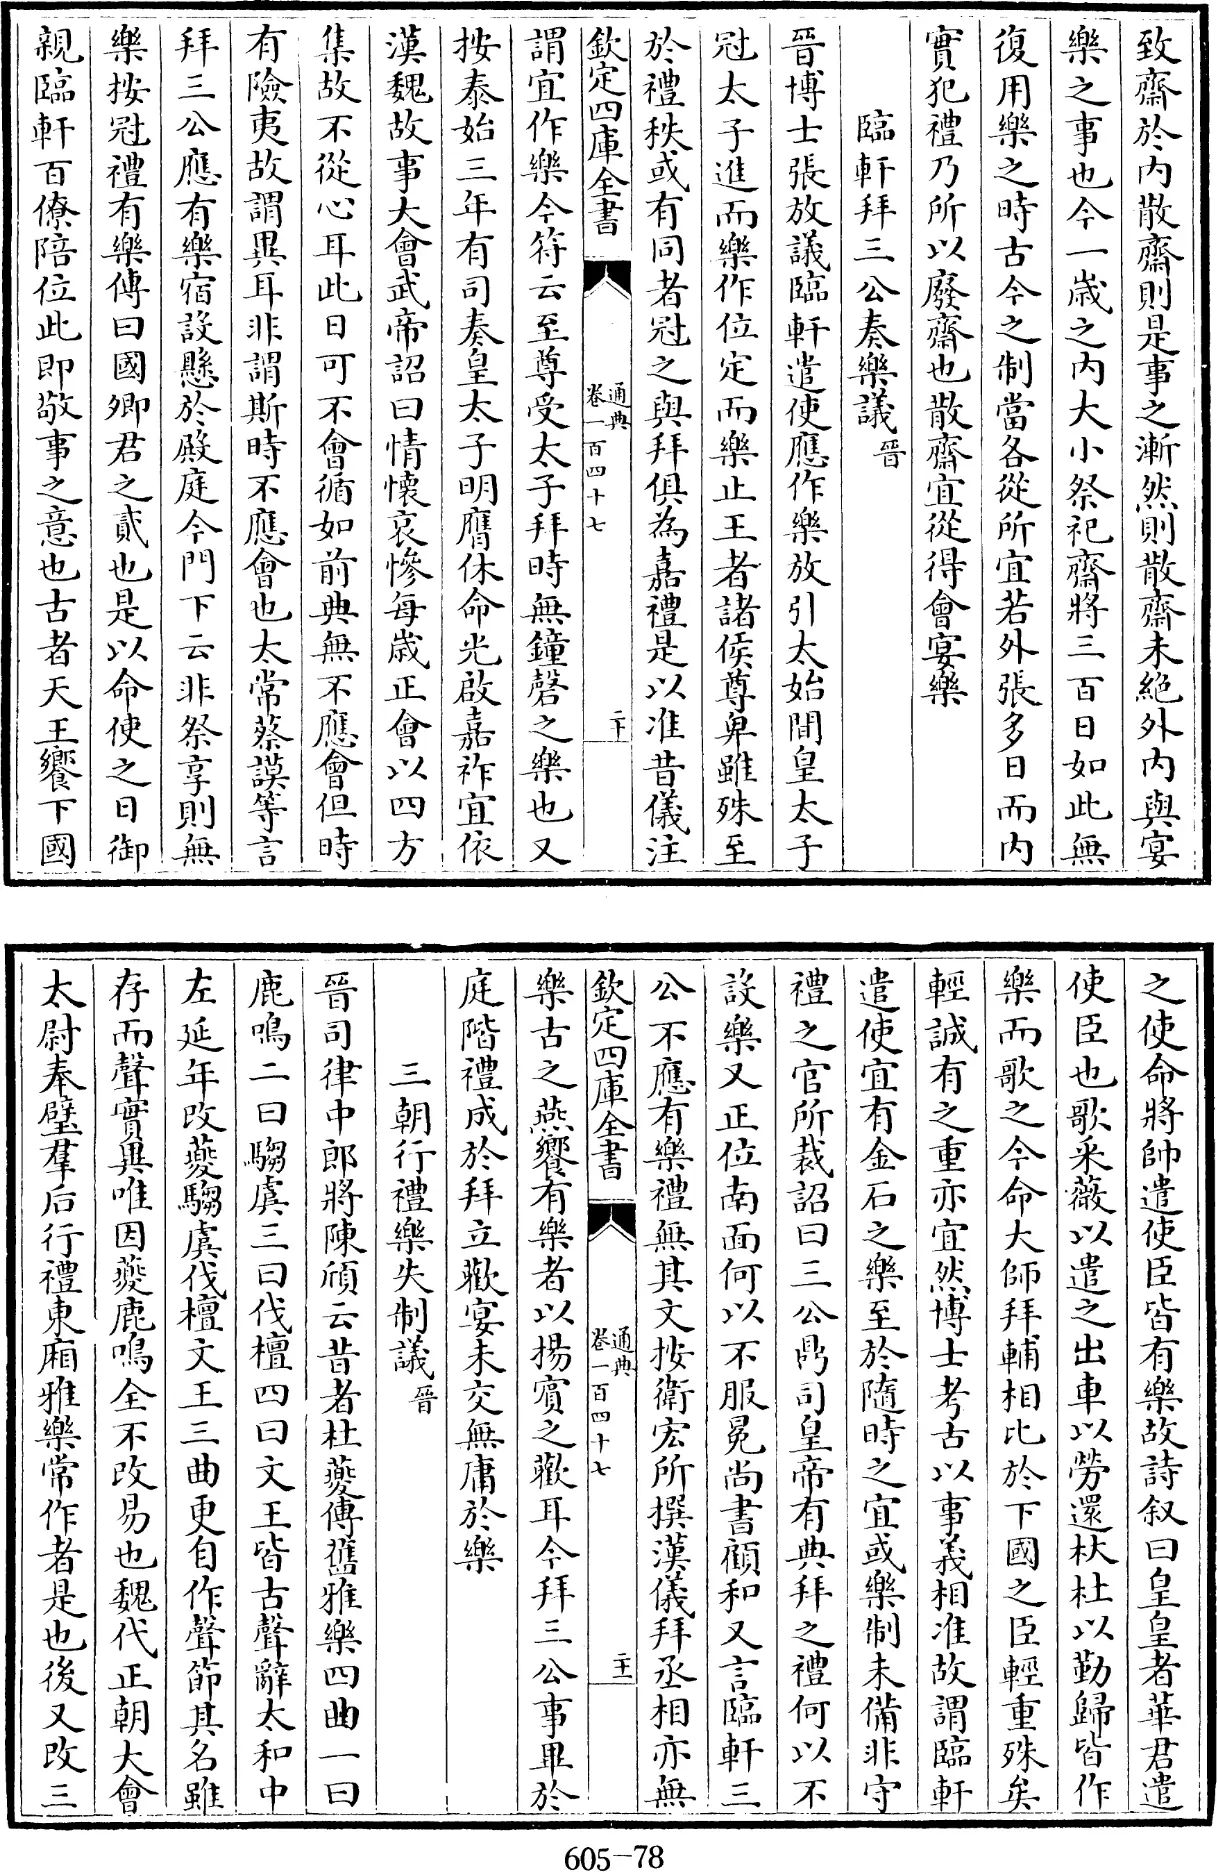 致齋於内散齋則是事之漸然則散齋未絶外内與宴
樂之事也今一歳之内大小祭祀齋將三百日如此無
復用樂之時古今之制當各從所宜若外張多日而内
實犯禮乃所以廢齋也散齋宜從得會宴樂
臨軒拜三公奏樂議晉
晉博士張放議臨軒遣使應作樂放引太始間皇太子
冠太子進而樂作位定而樂止王者諸侯尊卑雖殊至
於禮秩或有同者冠之與拜俱為嘉禮是以准昔儀注
欽定四庫全書
通典
卷一百四十七
二十
謂宜作樂今符云至尊受太子拜時無鐘磬之樂也又
按泰始三年有司奏皇太子明膺休命光啟嘉祚宜依
漢魏故事大會武帝詔曰情懷哀慘每歳正會以四方
集故不從心耳此日可不會循如前典無不應會但時
有險夷故謂異耳非謂斯時不應會也太常蔡謨等言
拜三公應有樂宿設懸於殿庭今門下云非祭享則無
樂按冠禮有樂傳曰國卿君之貳也是以命使之日御
親臨軒百僚陪位此即敬事之意也古者天王饗下國
之使命將帥遣使臣皆有樂故詩叙曰皇皇者華君遣
使臣也歌采薇以遣之出車以勞還杕杜以勤歸皆作
樂而歌之今命大師拜輔相比於下國之臣輕重殊矣
輕誠有之重亦宜然博士考古以事義相准故謂臨軒
遣使宜有金石之樂至於隨時之宜或樂制未備非守
禮之官所裁詔曰三公鼎司皇帝有典拜之禮何以不
設樂又正位南面何以不服冕尚書顧和又言臨軒三
公不應有樂禮無其文按衛宏所撰漢儀拜丞相亦無
欽定四庫全書
通典
卷一百四十七
二十一
樂古之燕饗有樂者以揚賓之歡耳今拜三公事畢於
庭階禮成於拜立歡宴未交無庸於樂
三朝行禮樂失制議晉
晉司律中郎將陳頎云昔者杜夔傳舊雅樂四曲一曰
鹿鳴二曰騶虞三曰伐檀四曰文王皆古聲辭太和中
左延年改夔騶虞伐檀文王三曲更自作聲節其名雖
存而聲實異唯因夔鹿鳴全不改易也魏代正朝大會
太尉奉璧羣后行禮東廂雅樂常作者是也後又改三
605-78